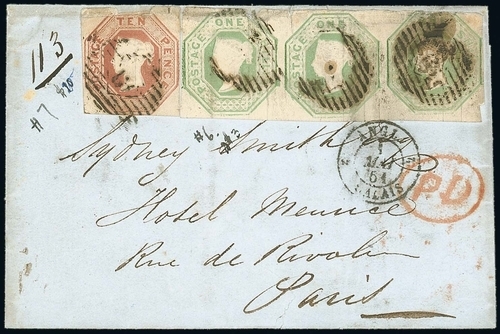 TEN PENCE
POSTAGE ONE
POSTAGE ONE
ONE
113
#7 #20
#6 #3
Sydney Smith
ANGL.
MAI
51
CALAIS
PD
Hotel Meurice
Rue de Rivoli
Paris